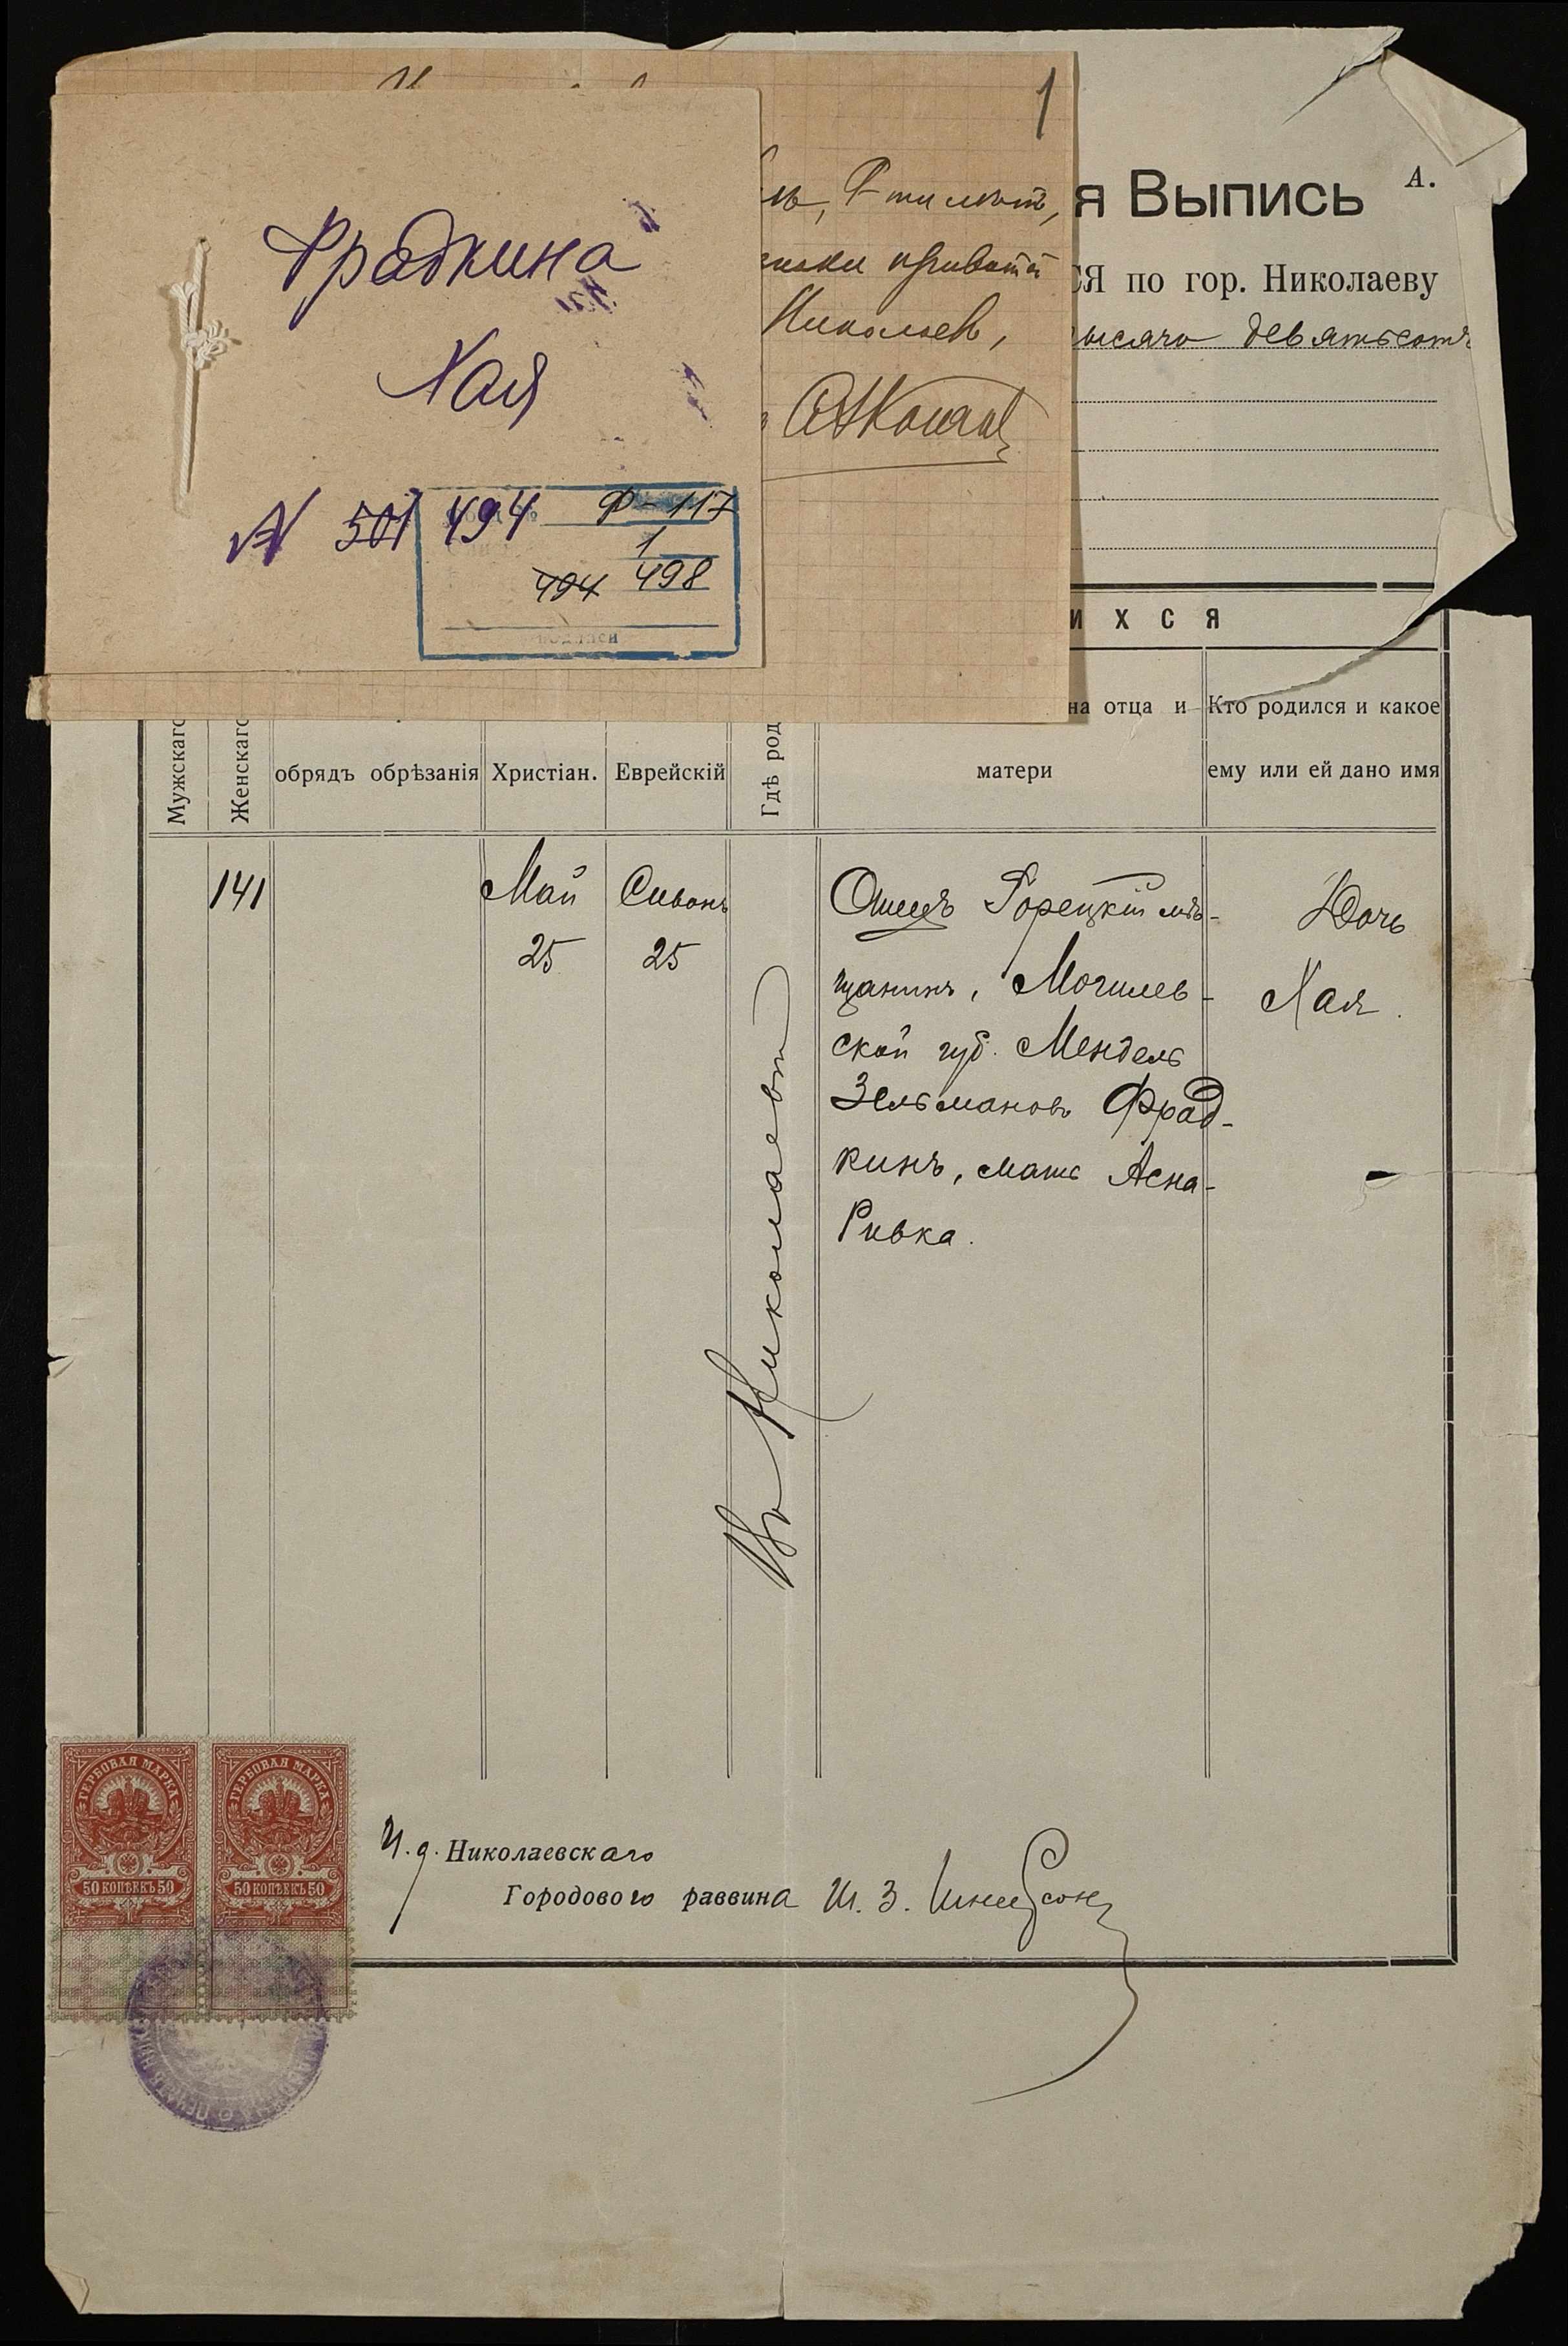 Фрадкина
Хая
N 501 494 Ф-117
1
494 498
1
Николаевъ,
я Выпись А.
СЯ по гор. Николаеву
тысяча девятьсотъ
ИХСЯ
Мужскаго
Женскаго
обрядъ обрѣзанія
Христіан.
Еврейскій
Гдѣ род
на отца и
матери
Кто родился и какое
ему или ей дано имя
141
Май
25
Сивонъ
25
Въ Николаевѣ
Отецъ Горецкій мѣ-
щанинъ, Могилев-
ской губ. Мендель
Зельмановъ Фрад-
кинъ, мать Асна-
Ривка.
Дочь
Хая.
ГЕРБОВАЯ МАРКА
50 КОПѢЕКЪ 50
ГЕРБОВАЯ МАРКА
50 КОПѢЕКЪ 50
И. д. Николаевскаго
Городового раввина Ш. З. Шнеерсонъ